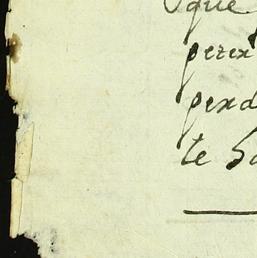 que
perex
pend
te Sa